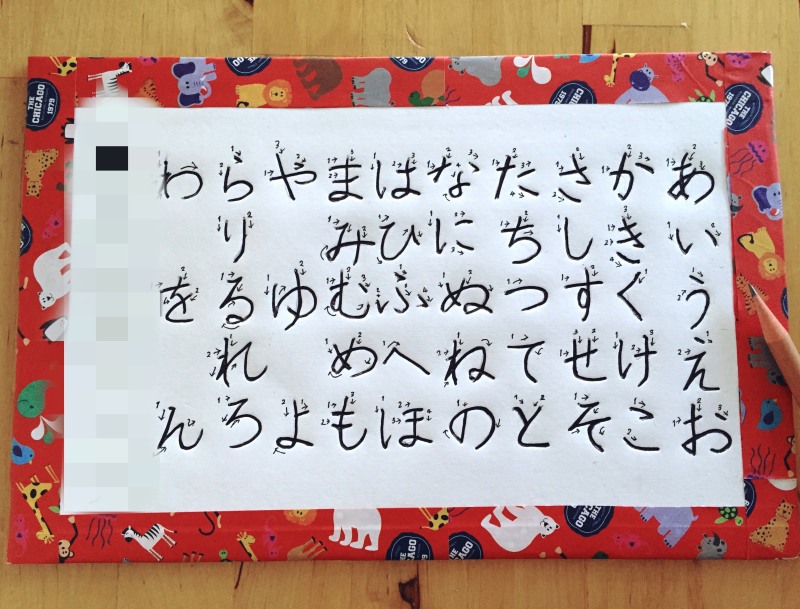 あいうえお
かきくけこ
さしすせそ
たちつてと
なにぬねの
はひふへほ
まみむめも
やゆよ
らりるれろ
わをん
THE
CHICAGO
1979